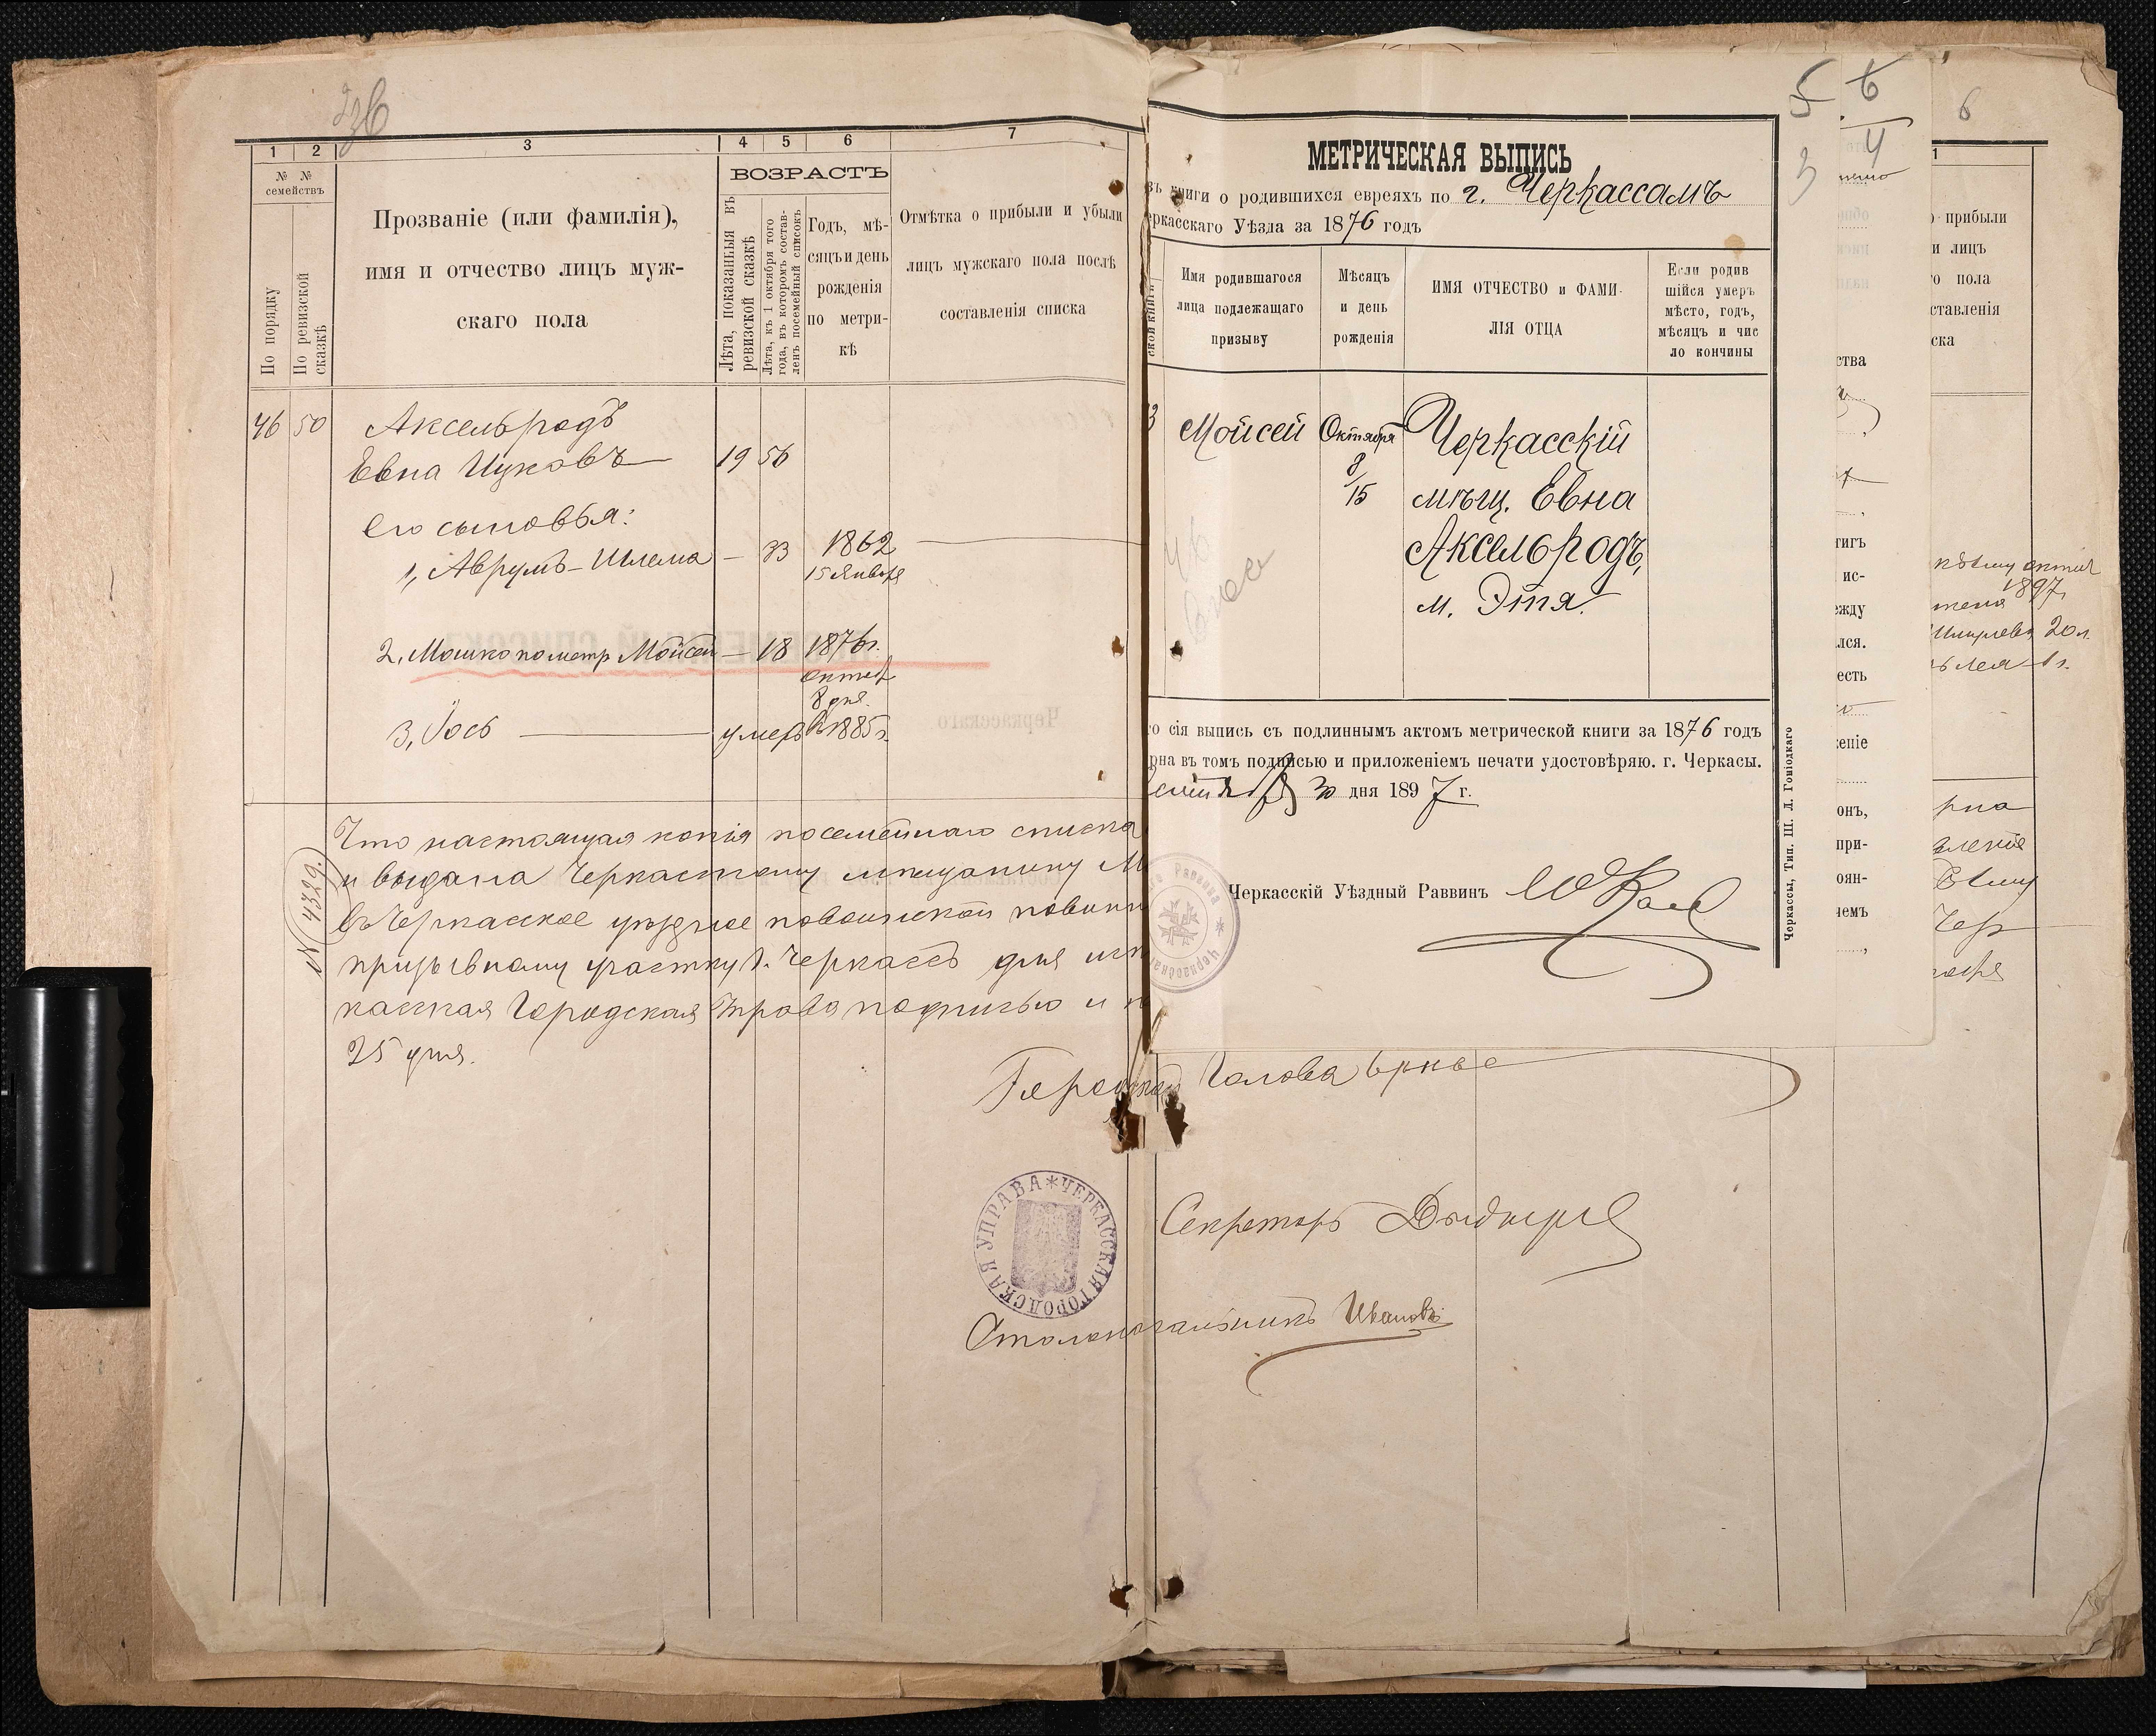 236
1 2 3 4 5 6 7
№ №
семействъ
По порядку
По ревизской
сказкѣ
Прозваніе (или фамилія),
имя и отчество лицъ муж-
скаго пола
ВОЗРАСТЪ
Лѣта, показаныя въ
ревизской сказкѣ
Лѣта, къ 1 октября того
года, въ которомъ состав-
ленъ посемейный списокъ
Годъ, мѣ-
сяцъ и день
рожденія
по метри-
кѣ
Отмѣтка о прибыли и убыли
лицъ мужскаго пола послѣ
составленія списка
46 50 Аксельродъ
Евна Ицковъ 19 56
Его сыновья:
1, Аврумъ-Шлема — 33 1862
15 Января
2, Мошко по метр Мойсей — 18 1876 г.
октяб
8 дня.
3, Іось умеръ въ 1885 г.
№ 4329.
Что настоящая копія посемейнаго списка
и выдана Черкасскому мѣщанину М
въ Черкасское уѣздное по воинской повинн
призывному участку г. Черкассъ для
касская Городская Управа подписью и п
25 дня.
Городской Голова
ЧЕРКАССКАЯ ГОРОДСКАЯ УПРАВА
Секретарь
Столоначальникъ Ивановъ
МЕТРИЧЕСКАЯ ВЫПИСЬ
въ книги о родившихся евреяхъ по г. Черкассамъ
еркасскаго Уѣзда за 1876 годъ
ской книги
Имя родившагося
лица подлежащаго
призыву
Мѣсяцъ
и день
рожденія
ИМЯ ОТЧЕСТВО и ФАМИ-
ЛІЯ ОТЦА
Если родив
шійся умеръ
мѣсто, годъ,
мѣсяцъ и чис
ло кончины
3 Мойсей Октября Черкасскій
8/15 мѣщ. Евна
Аксельродъ,
м. Этя.
46
го сія выпись съ подлиннымъ актомъ метрической книги за 1876 годъ
рна въ томъ подписью и приложеніемъ печати удостовѣряю. г. Черкасы.
30 дня 1897 г.
Черкасскій Уѣздный Раввинъ
Черкассы, Тип. Ш. Д. Гоніодкаго
5 6
4
3
ства
тигъ
ис-
ежду
лся.
есть
еніе
онъ,
при-
оян-
чемъ
6
1
о прибыли
и лицъ
о пола
ставленія
ска
1897
20 л.
рна